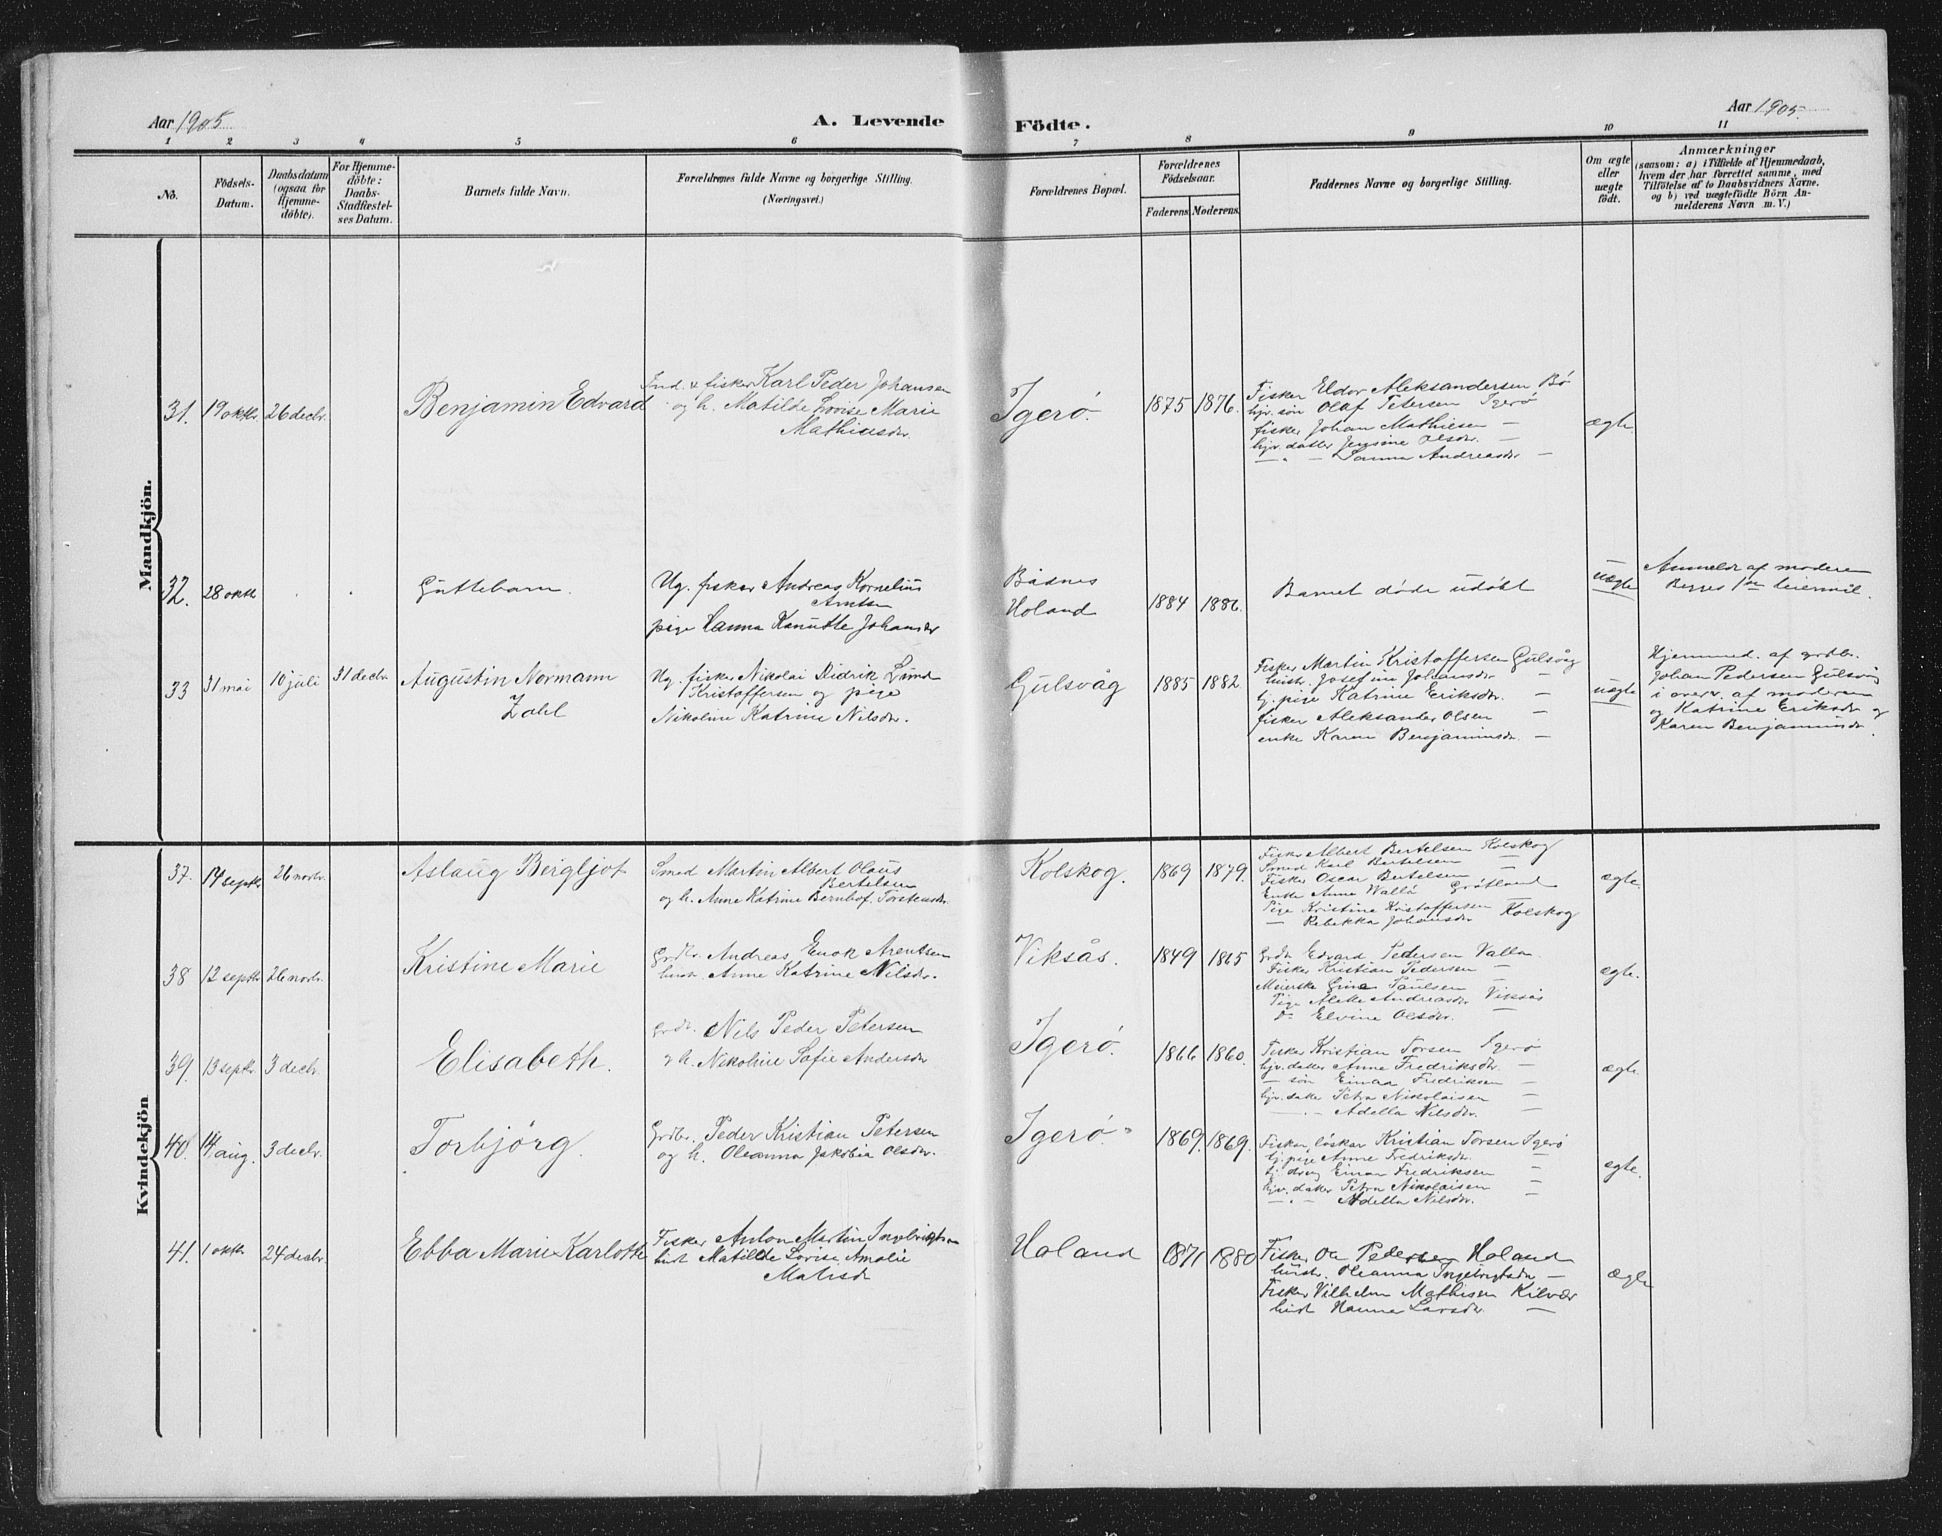 Aar 1905
A. Levende Födte.
Aar 1905.
1 2 3 4 5 6 7 8 9 10 11
No.
Födsels-
Datum.
Daabsdatum
(ogsaa for
Hjemme-
döbte).
For Hjemme-
döbte:
Daabs-
Stadfæstel-
ses Datum.
Barnets fulde Navn.
Forældrenes fulde Navne og borgerlige Stilling.
(Næringsvei.)
Forældrenes Bopæl.
Forældrenes
Födselsaar.
Faderens. Moderens.
Faddernes Navne og borgerlige Stilling.
Om ægte
eller
uægte
födt.
Anmærkninger
(saasom: a) i Tilfælde af Hjemmedaab,
hvem der har forrettet samme, med
Tilföielse af to Daabsvidners Navne.
og b) ved uægtefödte Börn An-
melderens Navn m. V.)
Mandkjön.
31. 19 oktbr. 26 decbr. Benjamin Edvard
Ind. & fisker Karl Peder Johansen
og h. Matilde Lovise Marie
Mathiasdr.
Igerö. 1875 1876.
Fisker Eldor Aleksandersen Bö
hjv. sön Olaf Petersen Igerö
fisker Johan Mathiesen —
hjv. datter Jensine Olsdr. —
— " — Sanna Andreasdr —
ægte.
32. 28 oktb. Guttebarn.
Ug. fisker Andreas Kornelius
Arntsen
pige Hanna Kanutte Johansdr
Bådnes
Holand
1884 1886.
Barnet döde udöbt
uægte
Anmeldt af moderen
Begges 1ste leiermål.
33 31 mai 10 juli 31 decbr Augustin Normann
Zahl
Ug. fisker Nikolai Didrik Lund
Kristoffersen og pige
Nikoline Katrine Nilsdr.
Gulsvåg 1885 1882
Fisker Martin Kristoffersen Gulsvåg
hustr. Josefine Johansdr —
tj. pige Katrine Eriksdr. —
fisker Aleksander Olsen —
enke Karen Benjaminsdr. —
uægte
Hjemmed. af grdbr.
Johan Pedersen Gulsvåg
i overv. af moderen
og Katrine Eriksdr og
Karen Benjaminsdr.
Kvindekjön
37. 14 septbr. 26 novbr. Aslaug Bergljot
Smed Martin Albert Olaus
Bertelsen
og h. Anne Katrine Bernhof. Torstensdr.
Kolskog. 1869 1879.
Fisker Albert Bertelsen Kolskog
Smed Karl Bertelsen —
Fisker Oscar Bertelsen
Enke Anne Wallö Gråtland
Pige Kristine Kristoffersen Kolskog
— Rebekka Johansdr
ægte.
38 12 septbr 26 novbr. Kristine Marie
Grdbr. Andreas Enok Arentsen
hust. Anne Katrine Nilsdr.
Viksås. 1849 1865
Grdb Edvard Pedersen Valla
Fisker Kristian Pedersen —
Meierske Gina Paulsen
Pige Aleke Andreasdr Viksås
Do Elvine Olsdr.
ægte.
39. 13 septbr. 3 decbr. Elisabeth.
Grdbr. Nils Peder Petersen
& h. Nikoline Sofie Andersdr
Igerö. 1866 1860.
Fisker Kristian Torsen Igerö
hjv. datter Anne Fredriksdr. —
— sön Einar Fredriksen —
hjv. datte Petra Nikolaisen —
— " — Adella Nilsdr. —
ægte
40. 14 aug. 3 decbr. Torbjörg.
Grdbr. Peder Kristian Petersen
og h. Oleanna Jakobia Olsdr.
Igerö. 1869. 1869.
Fisker, löskar Kristian Torsen Igerö
tj. pige Anne Fredriksdr. —
tj. dreng Einar Fredriksen —
hjv. datter Petra Nikolaisen —
— " — Adella Nilsdr. —
ægte.
41. 1 oktbr 24 decbr. Ebba Marie Karlotte
Fisker Anton Martin Ingebrigtsen
hust Matilde Lovise Amalie
Matisdr
Holand 1871 1880
Fisker Ole Pedersen Holand
hustr. Oleanna Ingebrigtsdr —
Fisker Vilhelm Mathisen Kilvær
hust Hanna Larsdr. —
ægte